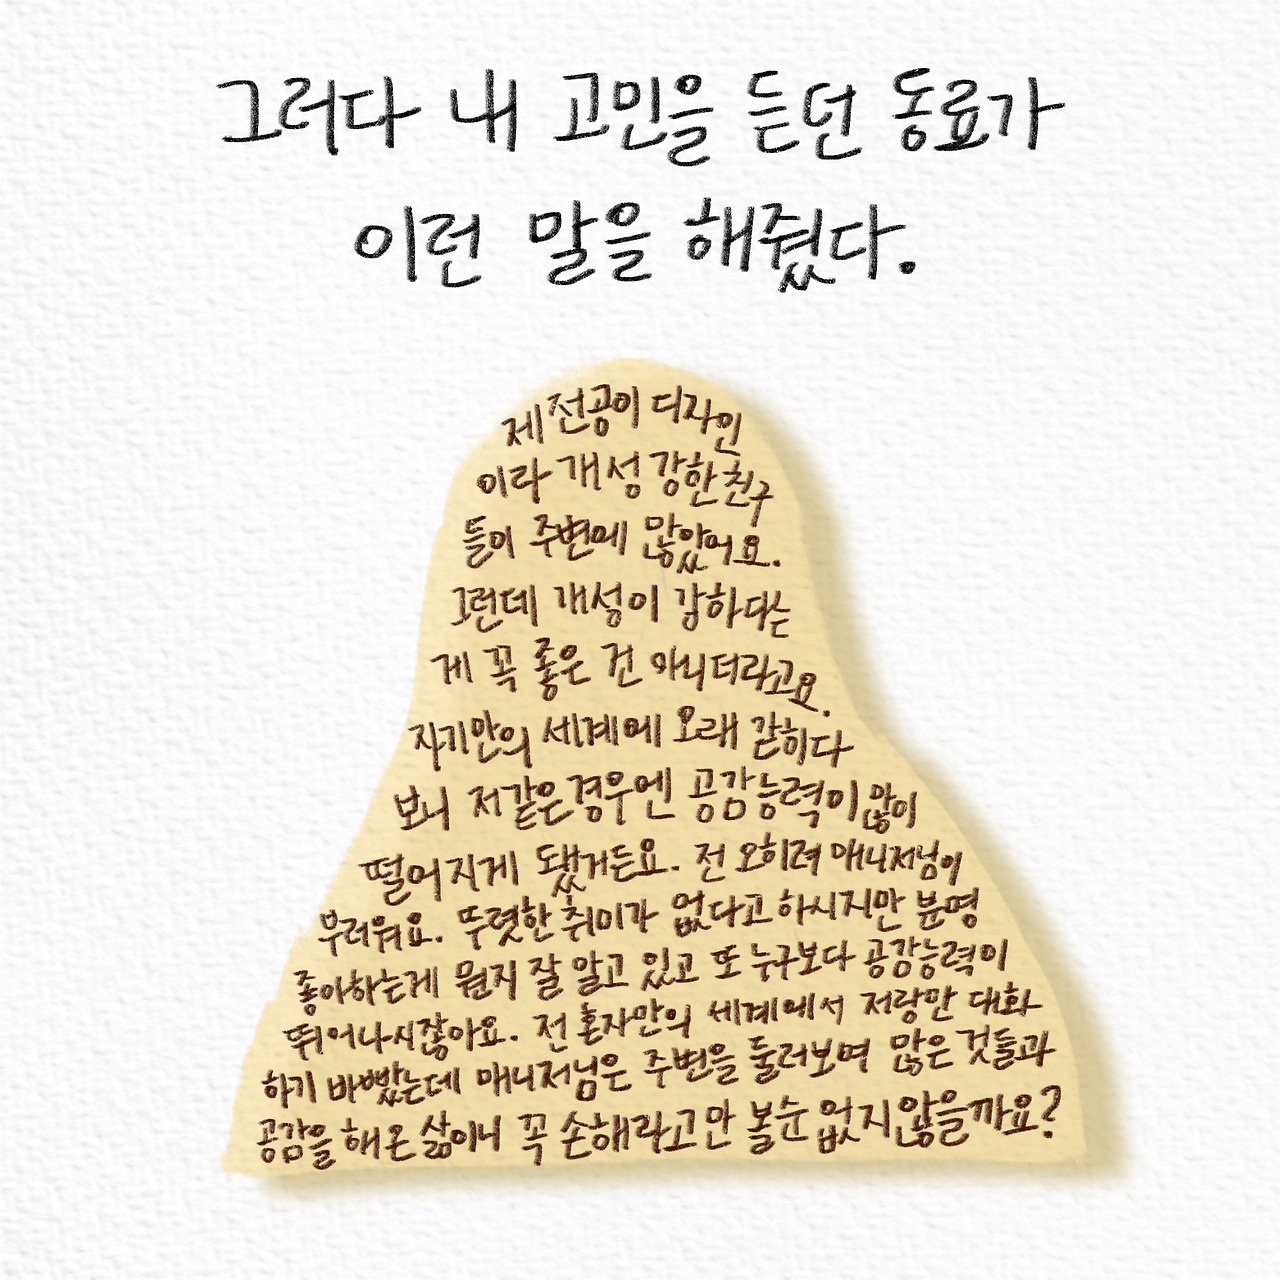 그러다 내 고민을 듣던 동료가
이런 말을 해줬다.
제 전공이 디자인
이라 개성 강한 친구
들이 주변에 많았어요.
그런데 개성이 강하다는
게 꼭 좋은 건 아니더라고요.
자기만의 세계에 오래 갇히다
보니 저같은 경우엔 공감능력이 많이
떨어지게 됐거든요. 전 오히려 매니저님이
부러워요. 뚜렷한 취미가 없다고 하시지만 분명
좋아하는게 뭔지 잘 알고 있고 또 누구보다 공감능력이
뛰어나시잖아요. 전 혼자만의 세계에서 저랑만 대화
하기 바빴는데 매니저님은 주변을 둘러보며 많은 것들과
공감을 해온 삶이니 꼭 손해라고만 볼순 없지않을까요?